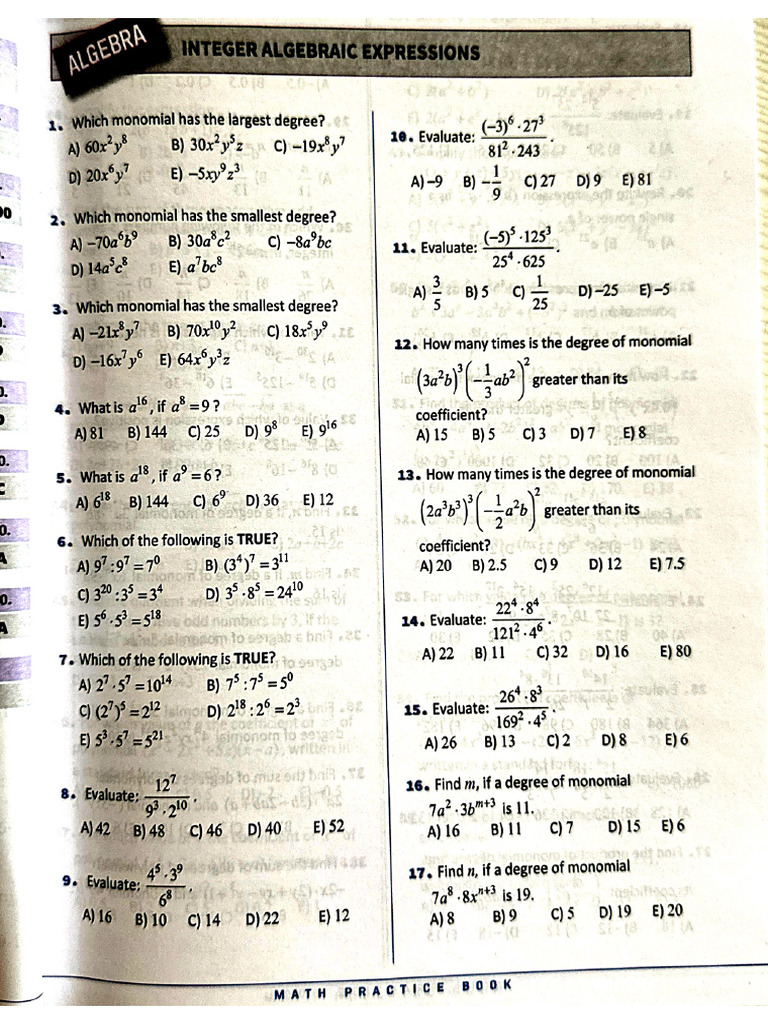 ALGEBRA
INTEGER ALGEBRAIC EXPRESSIONS
1. Which monomial has the largest degree?
A) 60x²y⁸ B) 30x²y⁵z C) –19x⁸y⁷
D) 20x⁶y⁷ E) –5xy⁹z³
2. Which monomial has the smallest degree?
A) –70a⁶b⁹ B) 30a⁸c² C) –8a⁹bc
D) 14a⁵c⁸ E) a⁷bc⁸
3. Which monomial has the smallest degree?
A) –21x⁸y⁷ B) 70x¹⁰y² C) 18x⁵y⁹
D) –16x⁷y⁶ E) 64x⁶y³z
4. What is a¹⁶, if a⁸ = 9 ?
A) 81 B) 144 C) 25 D) 9⁸ E) 9¹⁶
5. What is a¹⁸, if a⁹ = 6 ?
A) 6¹⁸ B) 144 C) 6⁹ D) 36 E) 12
6. Which of the following is TRUE?
A) 9⁷ : 9⁷ = 7⁰ B) (3⁴)⁷ = 3¹¹
C) 3²⁰ : 3⁵ = 3⁴ D) 3⁵ · 8⁵ = 24¹⁰
E) 5⁶ · 5³ = 5¹⁸
7. Which of the following is TRUE?
A) 2⁷ · 5⁷ = 10¹⁴ B) 7⁵ : 7⁵ = 5⁰
C) (2⁷)⁵ = 2¹² D) 2¹⁸ : 2⁶ = 2³
E) 5³ · 5⁷ = 5²¹
8. Evaluate: 12⁷ / (9³ · 2¹⁰).
A) 42 B) 48 C) 46 D) 40 E) 52
9. Evaluate: (4⁵ · 3⁹) / 6⁸.
A) 16 B) 10 C) 14 D) 22 E) 12
10. Evaluate: ((–3)⁶ · 27³) / (81² · 243).
A) –9 B) –1/9 C) 27 D) 9 E) 81
11. Evaluate: ((–5)⁵ · 125³) / (25⁴ · 625).
A) 3/5 B) 5 C) 1/25 D) –25 E) –5
12. How many times is the degree of monomial
(3a²b)³(–1/3 ab²)² greater than its
coefficient?
A) 15 B) 5 C) 3 D) 7 E) 8
13. How many times is the degree of monomial
(2a³b³)³(–1/2 a²b)² greater than its
coefficient?
A) 20 B) 2.5 C) 9 D) 12 E) 7.5
14. Evaluate: (22⁴ · 8⁴) / (121² · 4⁶).
A) 22 B) 11 C) 32 D) 16 E) 80
15. Evaluate: (26⁴ · 8³) / (169² · 4⁵).
A) 26 B) 13 C) 2 D) 8 E) 6
16. Find m, if a degree of monomial
7a² · 3bᵐ⁺³ is 11.
A) 16 B) 11 C) 7 D) 15 E) 6
17. Find n, if a degree of monomial
7a⁸ · 8xⁿ⁺³ is 19.
A) 8 B) 9 C) 5 D) 19 E) 20
MATH PRACTICE BOOK